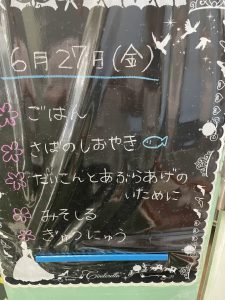 6月27日(金)
ごはん
さばのしおやき
だいこんとあぶらあげの
いために
みそしる
ぎゅうにゅう
Cinderella